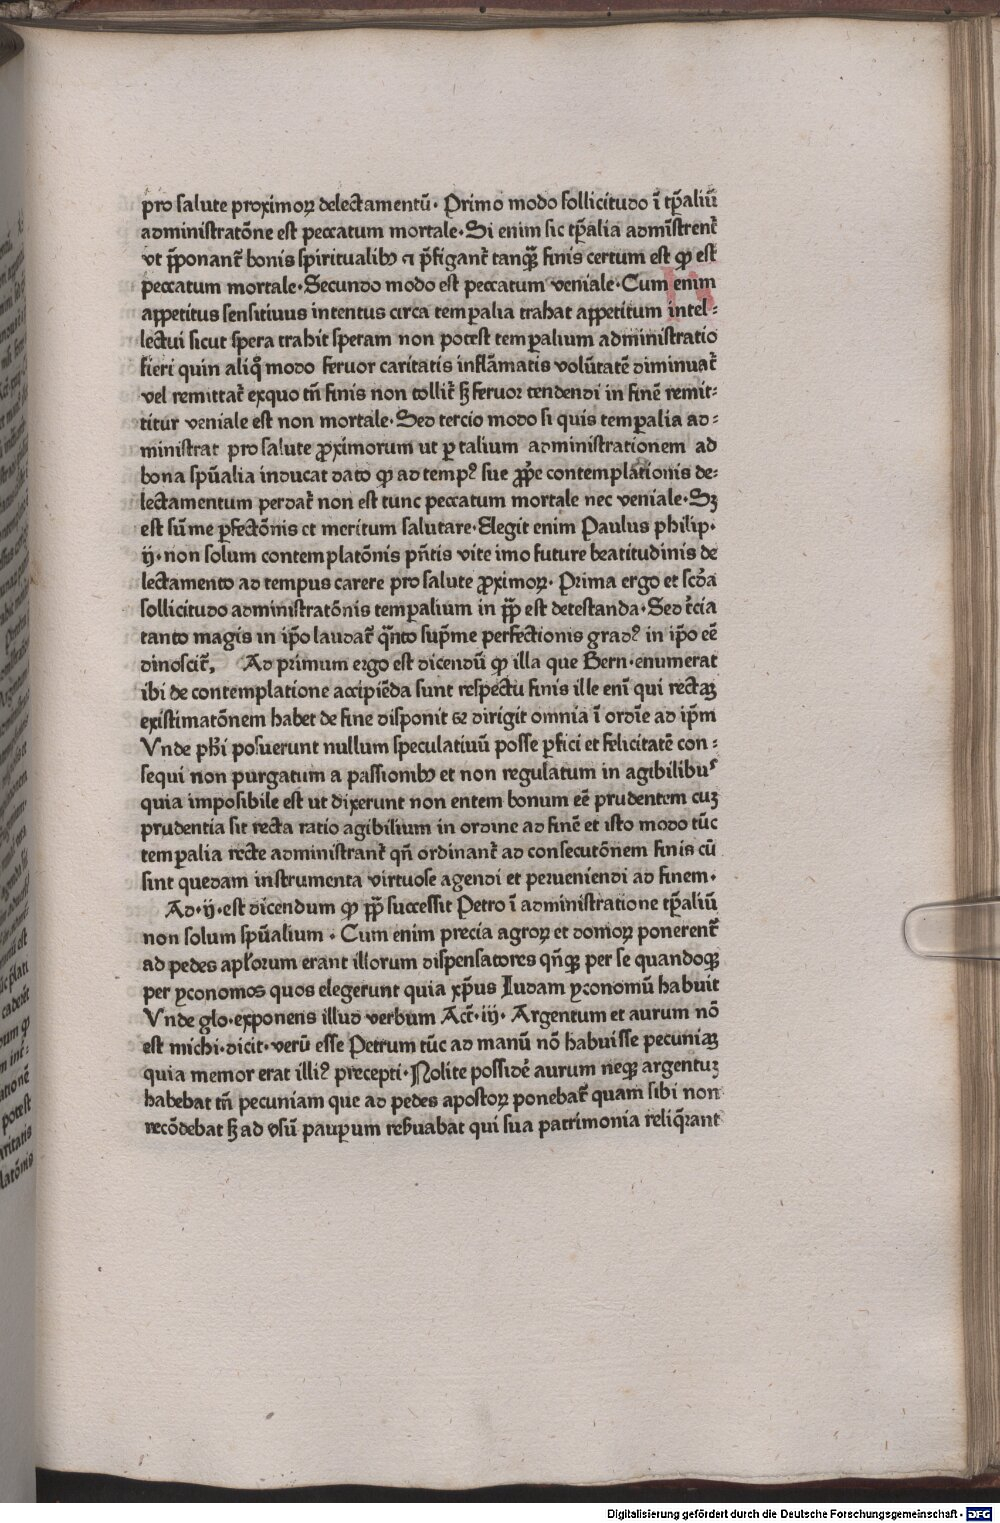 pro salute proximoꝝ delectamentū. Primo modo sollicitudo ī tp̄aliū
administratōne est peccatum mortale. Si enim sic tp̄alia admīstrent᷑
vt p̄ponant᷑ bonis spiritualibꝰ ⁊ p̄figant᷑ tanqꝫ finis certum est ꝙ est
peccatum mortale. Secundo modo est peccatum veniale. Cum enim
appetitus sensitiuus intentus circa temꝑalia trahat appetitum intel⸗
lectui sicut spera trahit speram non potest temꝑalium administratio
fieri quin aliq̄ modo feruor caritatis inflāmatis volūtatē diminuat᷑
vel remittat᷑ exquo tn̄ finis non tollit᷑ ſꝫ feruor tendendi in finē remit⸗
titur veniale est non mortale. Sed tercio modo si quis temꝑalia ad⸗
ministrat pro salute ꝓximorum ut ꝑ talium administrationem ad
bona spūalia inducat dato ꝙ ad tempꝰ sue ꝓp̄e contemplationis de⸗
lectamentum perdat᷑ non est tunc peccatum mortale nec veniale. Sꝫ
est sūme ꝑfectōnis et meritum salutare. Elegit enim Paulus philip.
ij. non solum contemplatōnis pn̄tis vite imo future beatitudinis de
lectamento ad tempus carere pro salute ꝓximoꝝ. Prima ergo et scd̄a
sollicitudo administratōnis temꝑalium in pp̄ est detestanda. Sed t᷑cia
tanto magis in ip̄o laudat᷑ qn̄to sup̄me perfectionis gradꝰ in ip̄o eē
dinoscit᷑, Ad primum ergo est dicendū ꝙ illa que Bern. enumerat
ibi de contemplatione accipiēda sunt respectu finis ille enī qui rectaꝫ
existimatōnem habet de fine disponit ⁊ dirigit omnia ī ordīe ad ip̄m
Vnde ph̄i posuerunt nullum speculatiuū posse ꝑfici et felicitatē con⸗
sequi non purgatum a passionibꝰ et non regulatum in agibilibus
quia imposibile est ut dixerunt non entem bonum eē prudentem cuꝫ
prudentia sit recta ratio agibilium in ordine ad finē et isto modo tūc
temꝑalia recte administrant᷑ qn̄ ordinant᷑ ad consecutōnem finis cū
sint quedam instrumenta virtuose agendi et perueniendi ad finem.
Ad. ij. est dicendum ꝙ pp̄ successit Petro ī administratione tp̄aliū
non solum spūalium. Cum enim precia agroꝝ et domoꝝ ponerent᷑
ad pedes apl̄orum erant illorum dispensatores qn̄qꝫ per se quandoqꝫ
per yconomos quos elegerunt quia xp̄us Iudam yconomū habuit
Vnde glo. exponens illud verbum Act᷑. iij. Argentum et aurum nō
est michi. dicit. verū esse Petrum tūc ad manū nō habuisse pecuniaꝫ
quia memor erat illiꝰ precepti. Nolite possidē aurum neqꝫ argentuꝫ
habebat tn̄ pecuniam que ad pedes apostoꝝ ponebat᷑ quam sibi non
recōdebat ſꝫ ad vsū pauꝑum reẜuabat qui sua patrimonia reliq̄rant
Digitalisierung gefördert durch die Deutsche Forschungsgemeinschaft - DFG